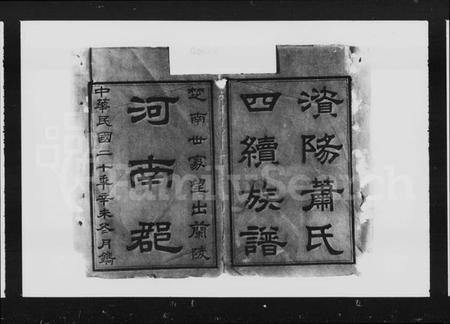 濱陽蕭氏
四續族譜
楚南世家望出蘭陵
河南郡
中華民國二十年辛未冬月鐫
FamilySearch